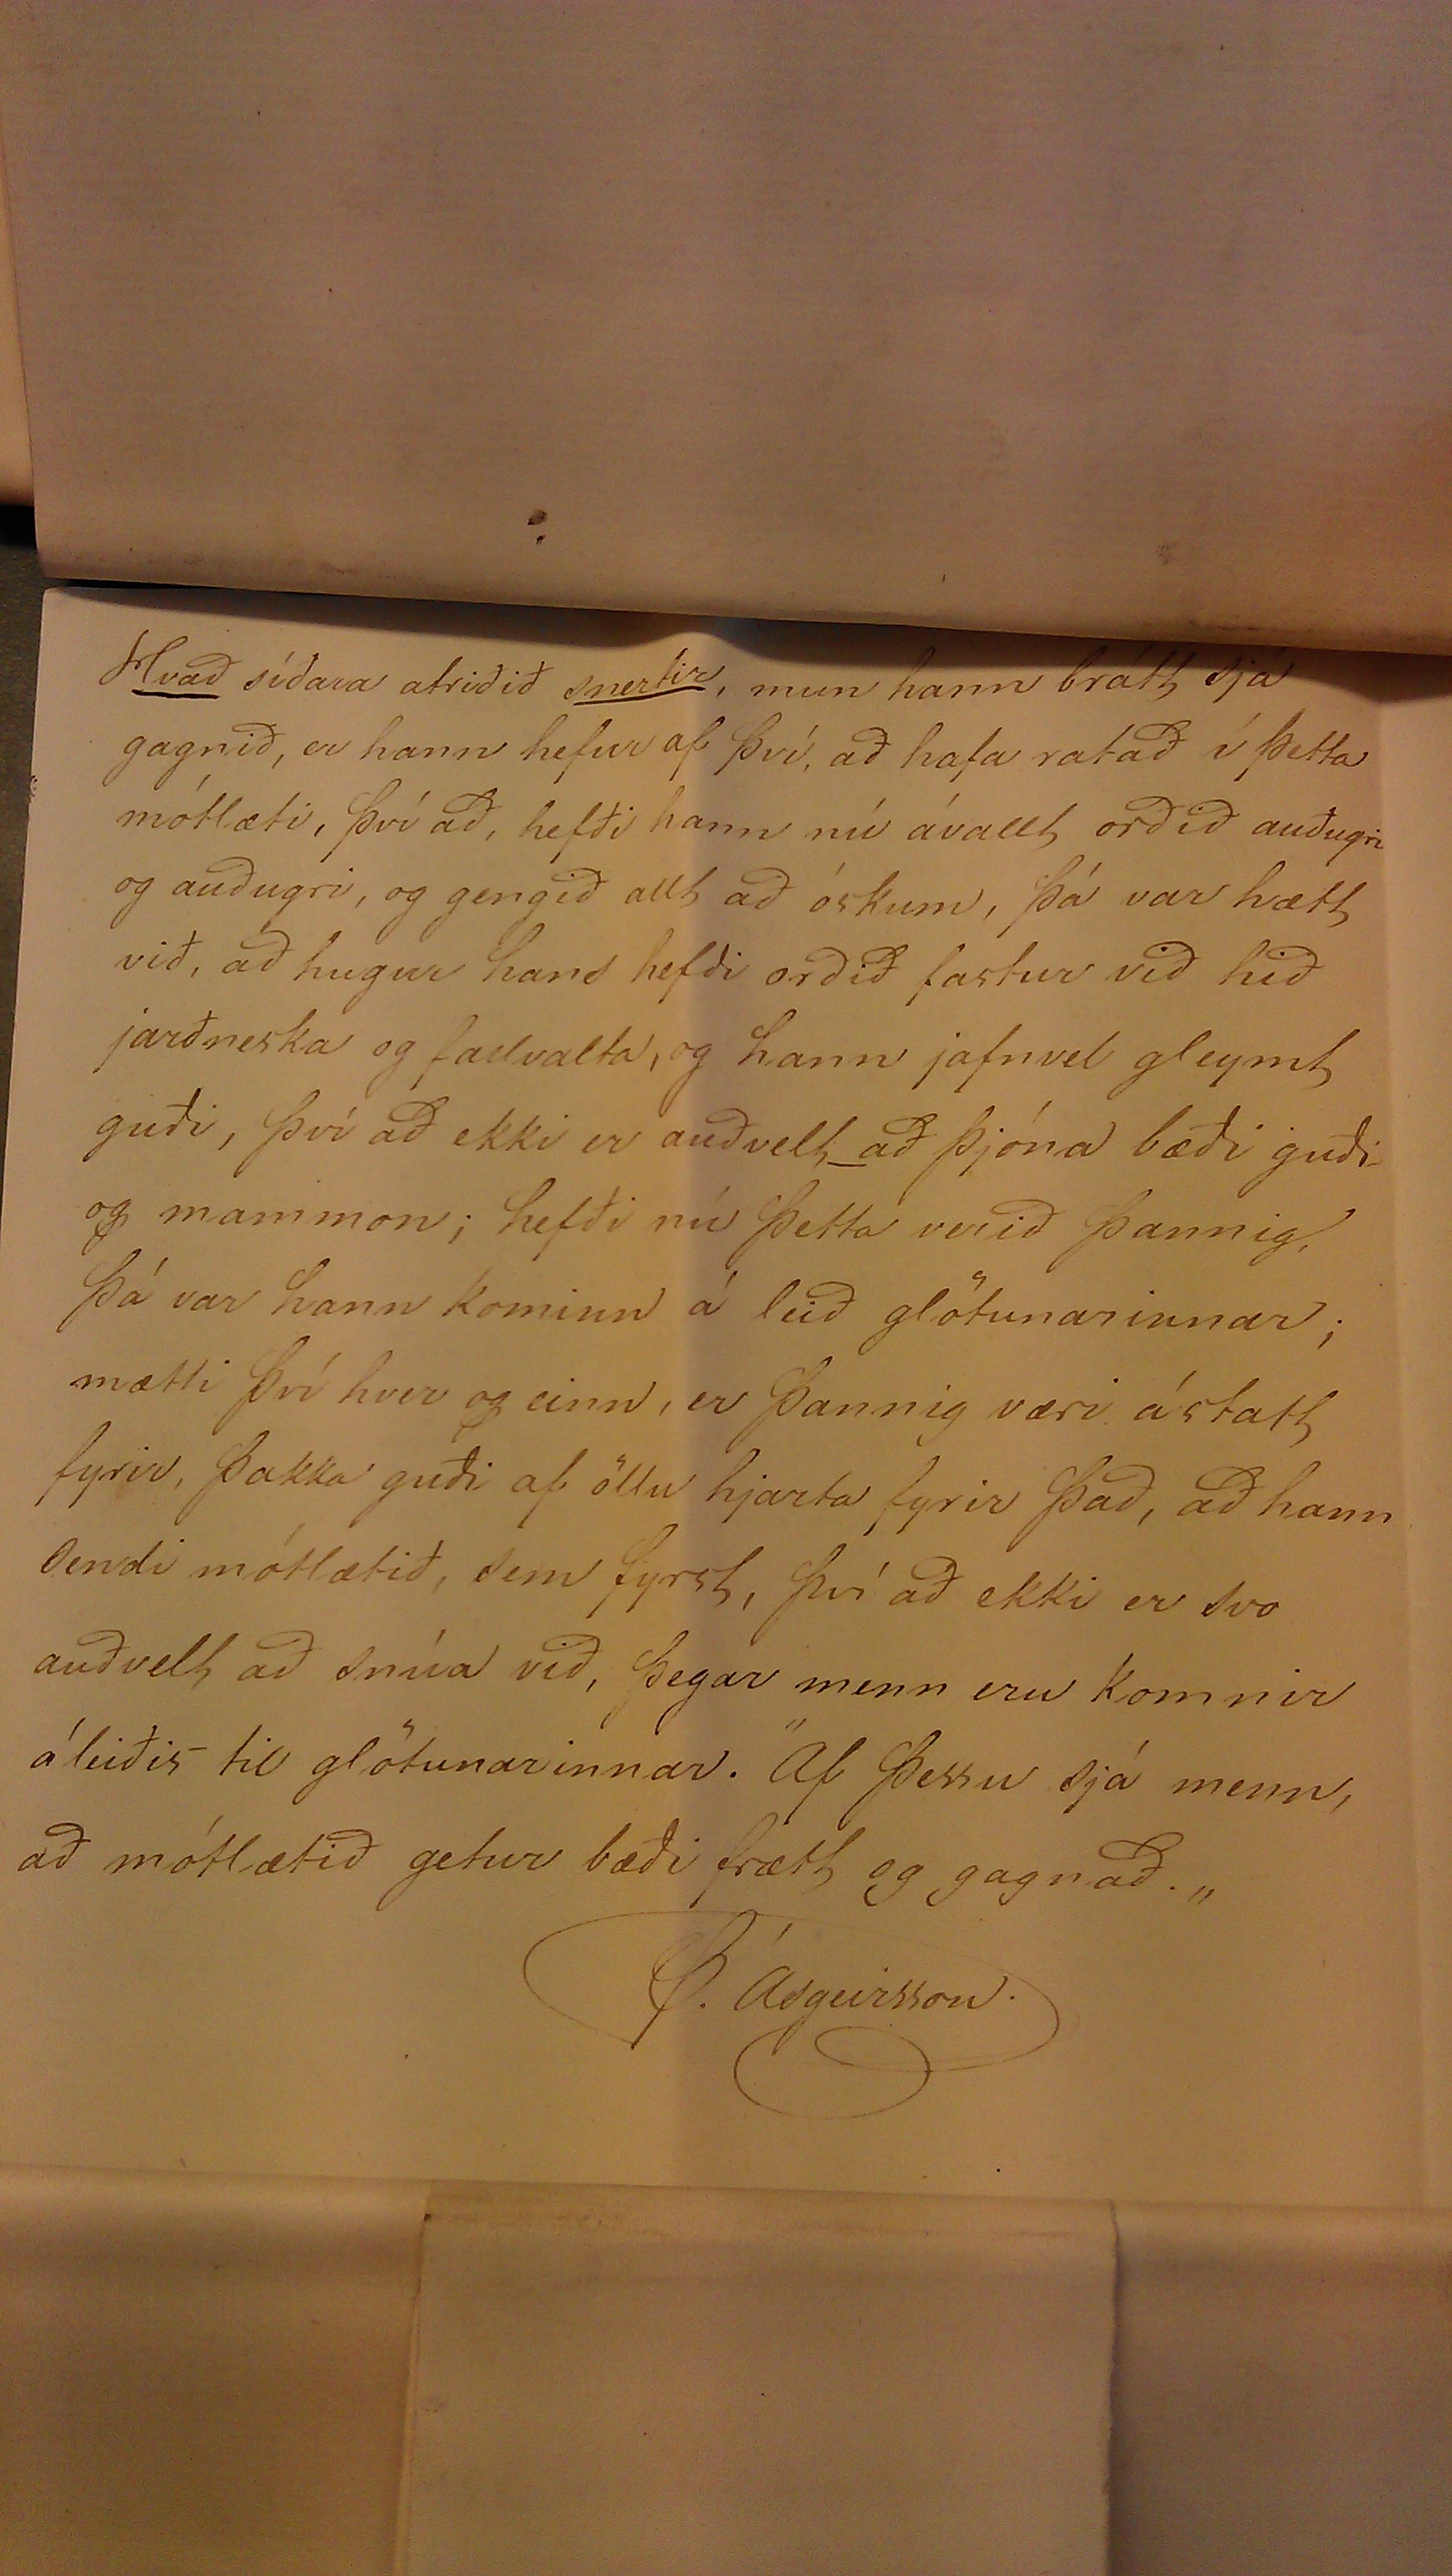 Hvað síðara atriðið snertir, mun hann brátt sjá
gagnið, er hann hefur af því, að hafa ratað í þetta
mótlæti, því að, hefði hann nú ávallt orðið auðugri
og auðugri, og gengið allt að óskum, þá var hætt
við, að hugur hans hefði orðið fastur við hið
jarðneska og fallvalta, og hann jafnvel gleymt
guði, því að ekki er auðvelt að þjóna bæði guði
og mammon; hefði nú þetta verið þannig,
þá var hann kominn á leið glötunarinnar;
mætti því hver og einn, er þannig væri ástatt
fyrir, þakka guði af öllu hjarta fyrir það, að hann
sendi mótlætið, sem fyrst, því að ekki er svo
auðvelt að snúa við, þegar menn eru komnir
áleiðis til glötunarinnar. "Af þessu sjá menn,
að mótlætið getur bæði frætt og gagnað.„
Þ. Ásgeirsson.